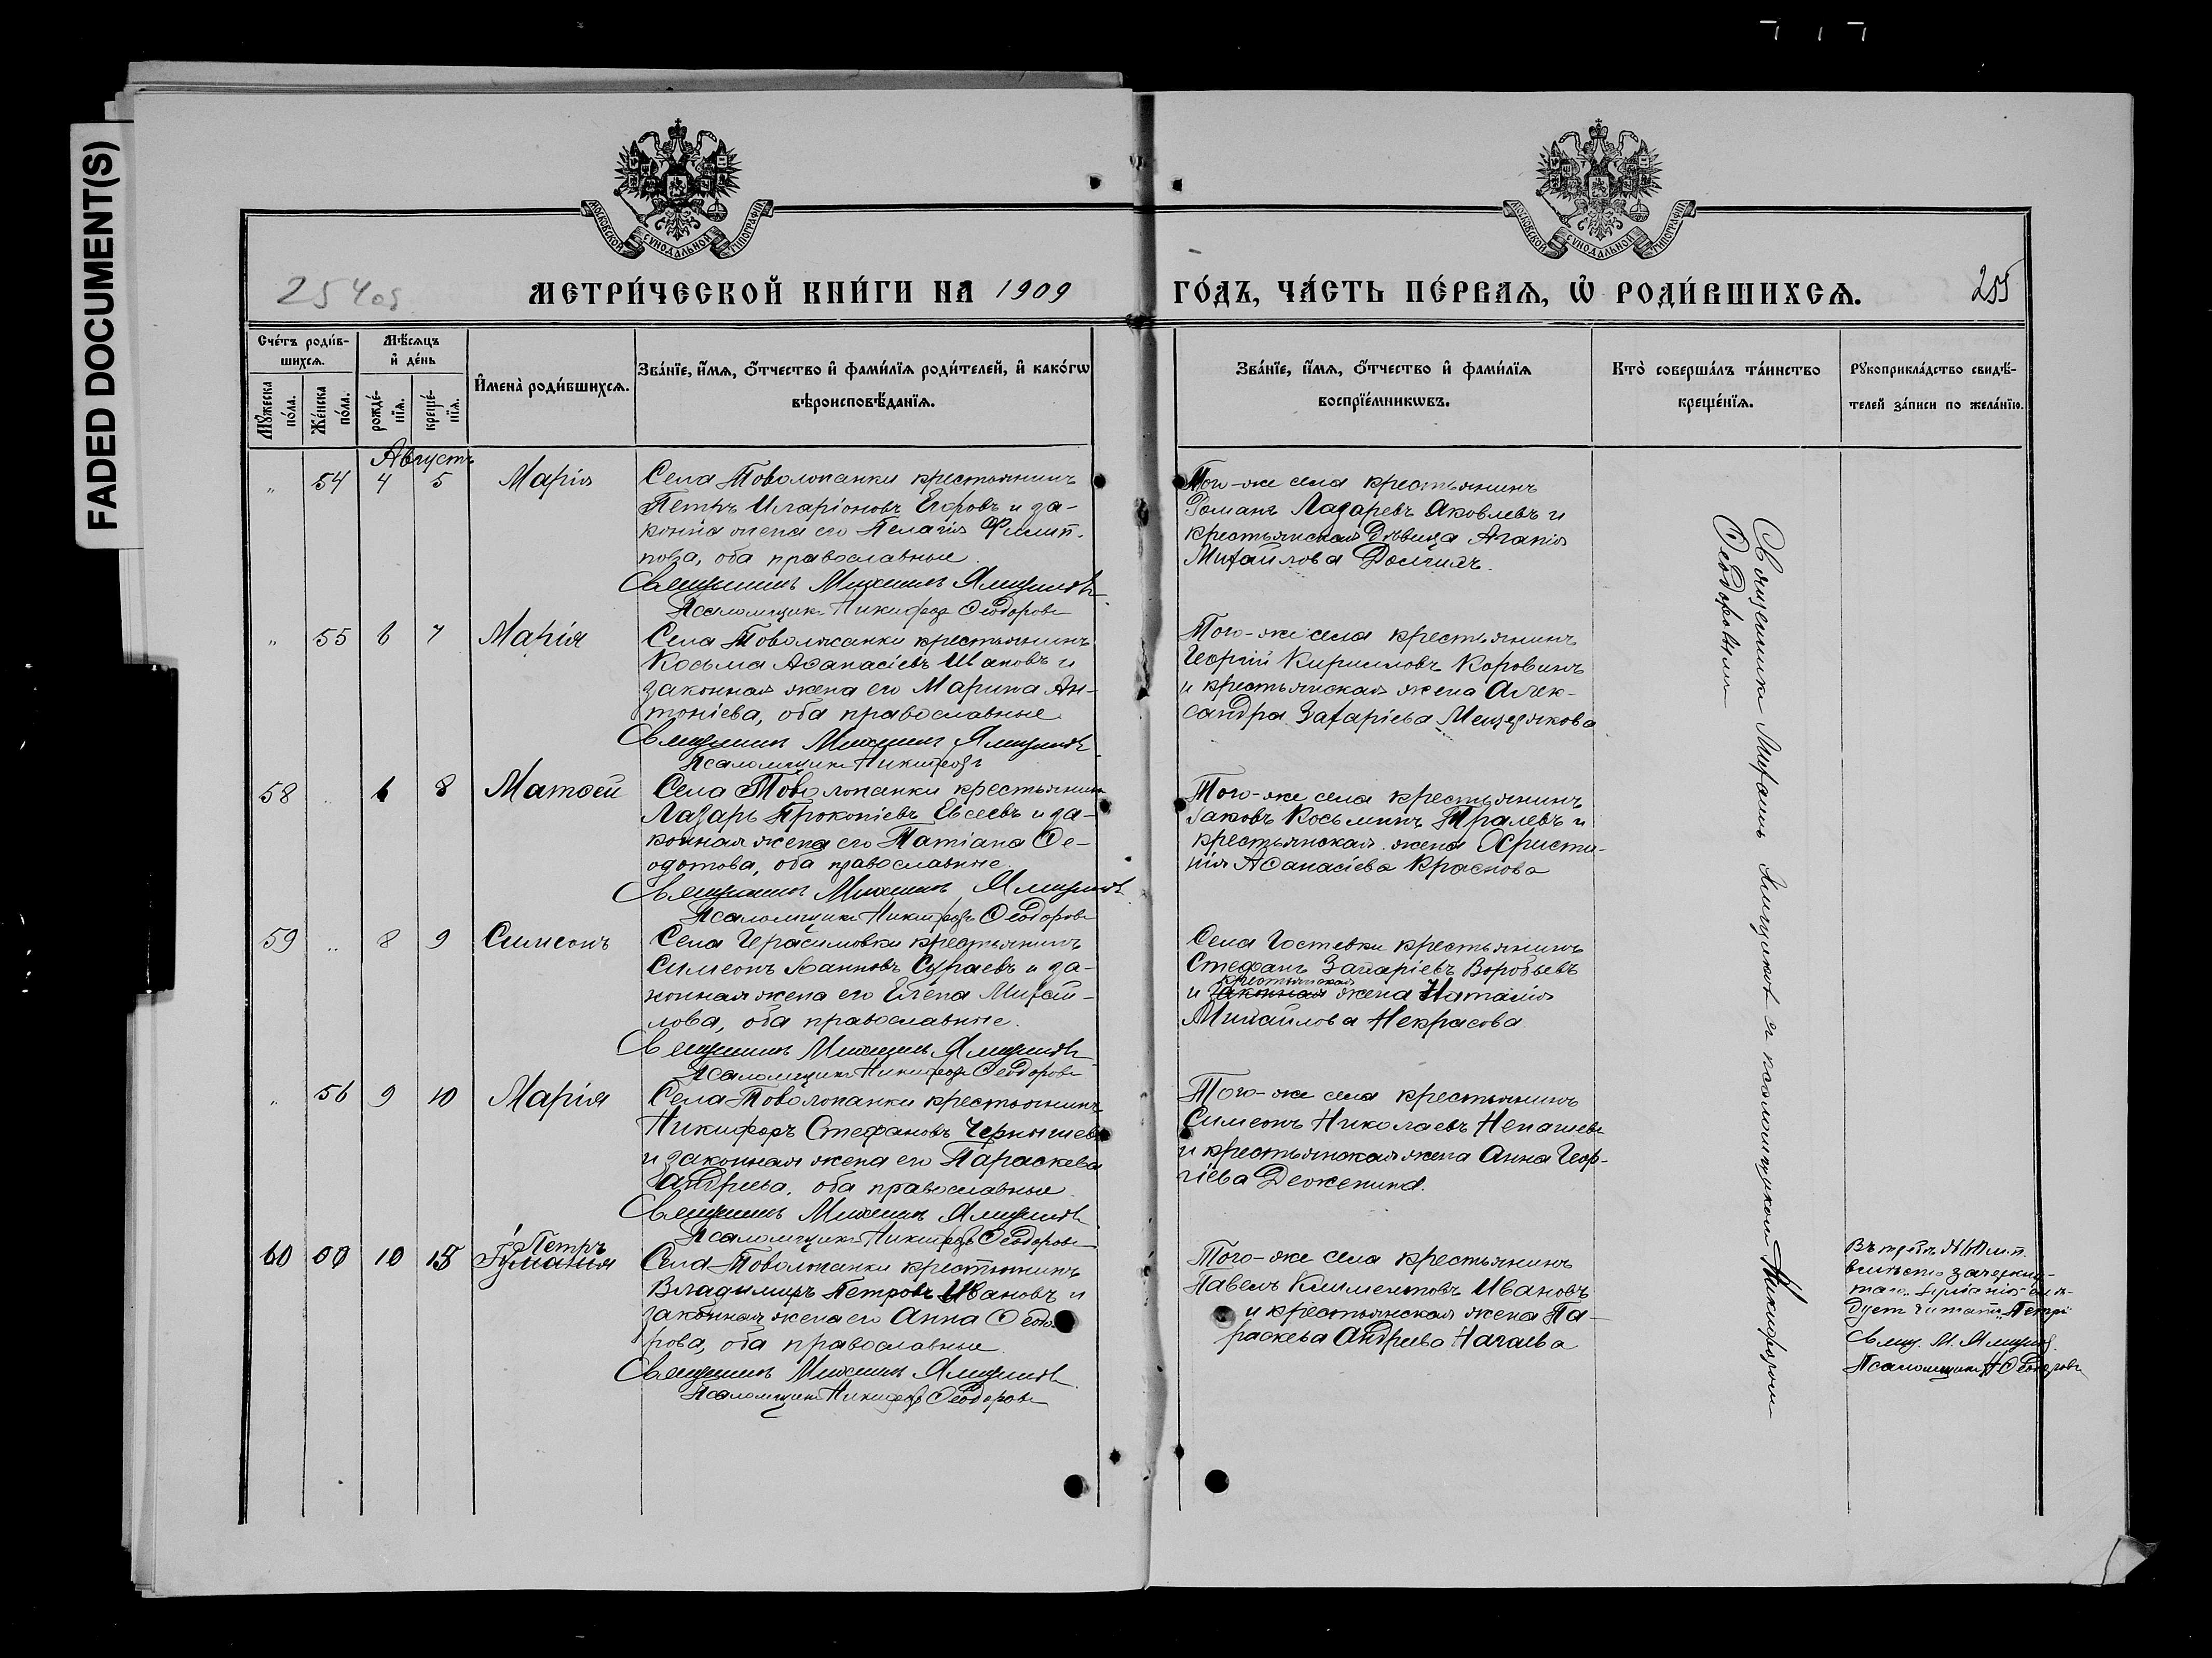 FADED DOCUMENT(S)
МОСКОВСКОЙ СУНОДАЛЬНОЙ ТИПОГРАФІИ
МОСКОВСКОЙ СУНОДАЛЬНОЙ ТИПОГРАФІИ
254об
МЕТРИ́ЧЕСКОЙ КНИ́ГИ НА 1909
ГО́ДЪ, ЧА́СТЬ ПЕ́РВАѦ, Ѡ РОДИ́ВШИХСѦ.
255
Сче́тъ роди́в-
шихсѧ.
Мѣ́сѧцъ
и҆ де́нь
Мꙋ́жеска по́ла.
Же́нска по́ла.
рожде́-нїѧ.
креще́-нїѧ.
И҆мена̀ роди́вшихсѧ.
Зва́нїе, и҆́мѧ, ѻ҆́тчество и҆ фами́лїѧ роди́телей, и҆ како́гѡ
вѣроисповѣ́данїѧ.
Зва́нїе, и҆́мѧ, ѻ҆́тчество и҆ фами́лїѧ
воспрїе́мникѡвъ.
Кто̀ соверша́лъ та́инство
креще́нїѧ.
Рꙋкоприкла́дство свидѣ́-
телей за́писи по жела́нїю.
Августъ
" 54 4 5 Марія
Села Товолжанки крестьянинъ
Петръ Иларіоновъ Егоровъ и за-
конна жена его Пелагія Филип-
пова, оба православные.
Священникъ Михаилъ Ямщиковъ
Псаломщикъ Никифоръ Ѳеодоровъ
Того-же села крестьянинъ
Романъ Лазаревъ Яковлевъ и
крестьянская дѣвица Агапія
Михайлова
" 55 6 7 Марія
Села Товолжанки крестьянинъ
Косьма Аѳанасіевъ Ивановъ и
законная жена его Марина Ан-
тоніева, оба православные
Священникъ Михаилъ Ямщиковъ
Псаломщикъ Никифоръ
Того-же села крестьянинъ
Георгій Кирилловъ Коровинъ
и крестьянская жена Алек-
сандра Захаріева Мещерякова
58 .. 6 8 Матѳей
Села Товолжанки крестьянинъ
Лазарь Прокопіевъ Евсеевъ и за-
конная жена его Татіана Ѳе-
одотова, оба православные.
Священникъ Михаилъ Ямщиковъ
Псаломщикъ Никифоръ Ѳеодоровъ
Того-же села крестьянинъ
Іаковъ Косьминъ и
крестьянская жена Христи-
нія Аѳанасіева Краснова
59 .. 8 9 Симеонъ
Села Герасимовки крестьянинъ
Симеонъ Іоанновъ и за-
конная жена его Елена Михай-
лова, оба православные.
Священникъ Михаилъ Ямщиковъ
Псаломщикъ Никифоръ Ѳеодоровъ
Села Гостевки крестьянинъ
Стефанъ Захаріевъ Воробьевъ
крестьянская
и законная жена Наталія
Михайлова Некрасова
" 56 9 10 Марія
Села Товолжанки крестьянинъ
Никифоръ Стефановъ Чернышевъ
и законная жена его Параскева
Андреева, оба православные.
Священникъ Михаилъ Ямщиковъ
Псаломщикъ Никифоръ Ѳеодоровъ
Того-же села крестьянинъ
Симеонъ Николаевъ
и крестьянская жена Анна Геор-
гіева
Петръ
60 10 15
Села Товолжанки крестьянинъ
Владимиръ Петровъ Ивановъ и
законная жена его Анна Ѳеодо-
рова, оба православные
Священникъ Михаилъ Ямщиковъ
Псаломщикъ Никифоръ Ѳеодоровъ
Того-же села крестьянинъ
Павелъ Климентовъ Ивановъ
и крестьянская жена Па-
раскева Андреева Нагаева
Священникъ Михаилъ Ямщиковъ съ псаломщикомъ Никифоромъ
Ѳеодоровымъ
вмѣсто зачеркну-
таго слѣ-
дуетъ читать „Петръ"
Свящ. М. Ямщиковъ.
Псаломщикъ Н. Ѳеодоровъ